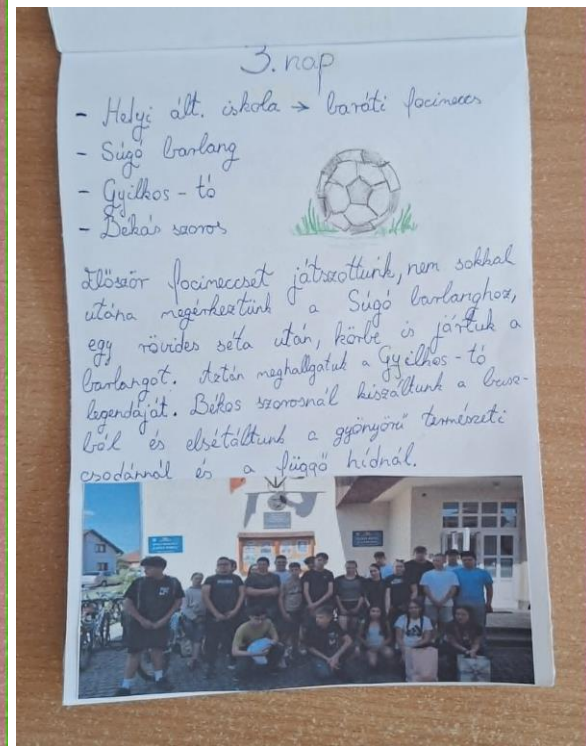 3. nap
- Helyi ált. iskola → baráti focimeccs
- Súgó barlang
- Gyilkos - tó
- Békás szoros
Először focimeccset játszottunk, nem sokkal
utána megérkeztünk a Súgó barlanghoz,
egy rövides séta után, körbe is jártuk a
barlangot. Aztán meghallgatuk a Gyilkos - tó
legendáját. Békos szorosnál kiszáltunk a busz-
ból és elsétáltunk a gyönyörű természeti
csodánnál és a függő hídnál.